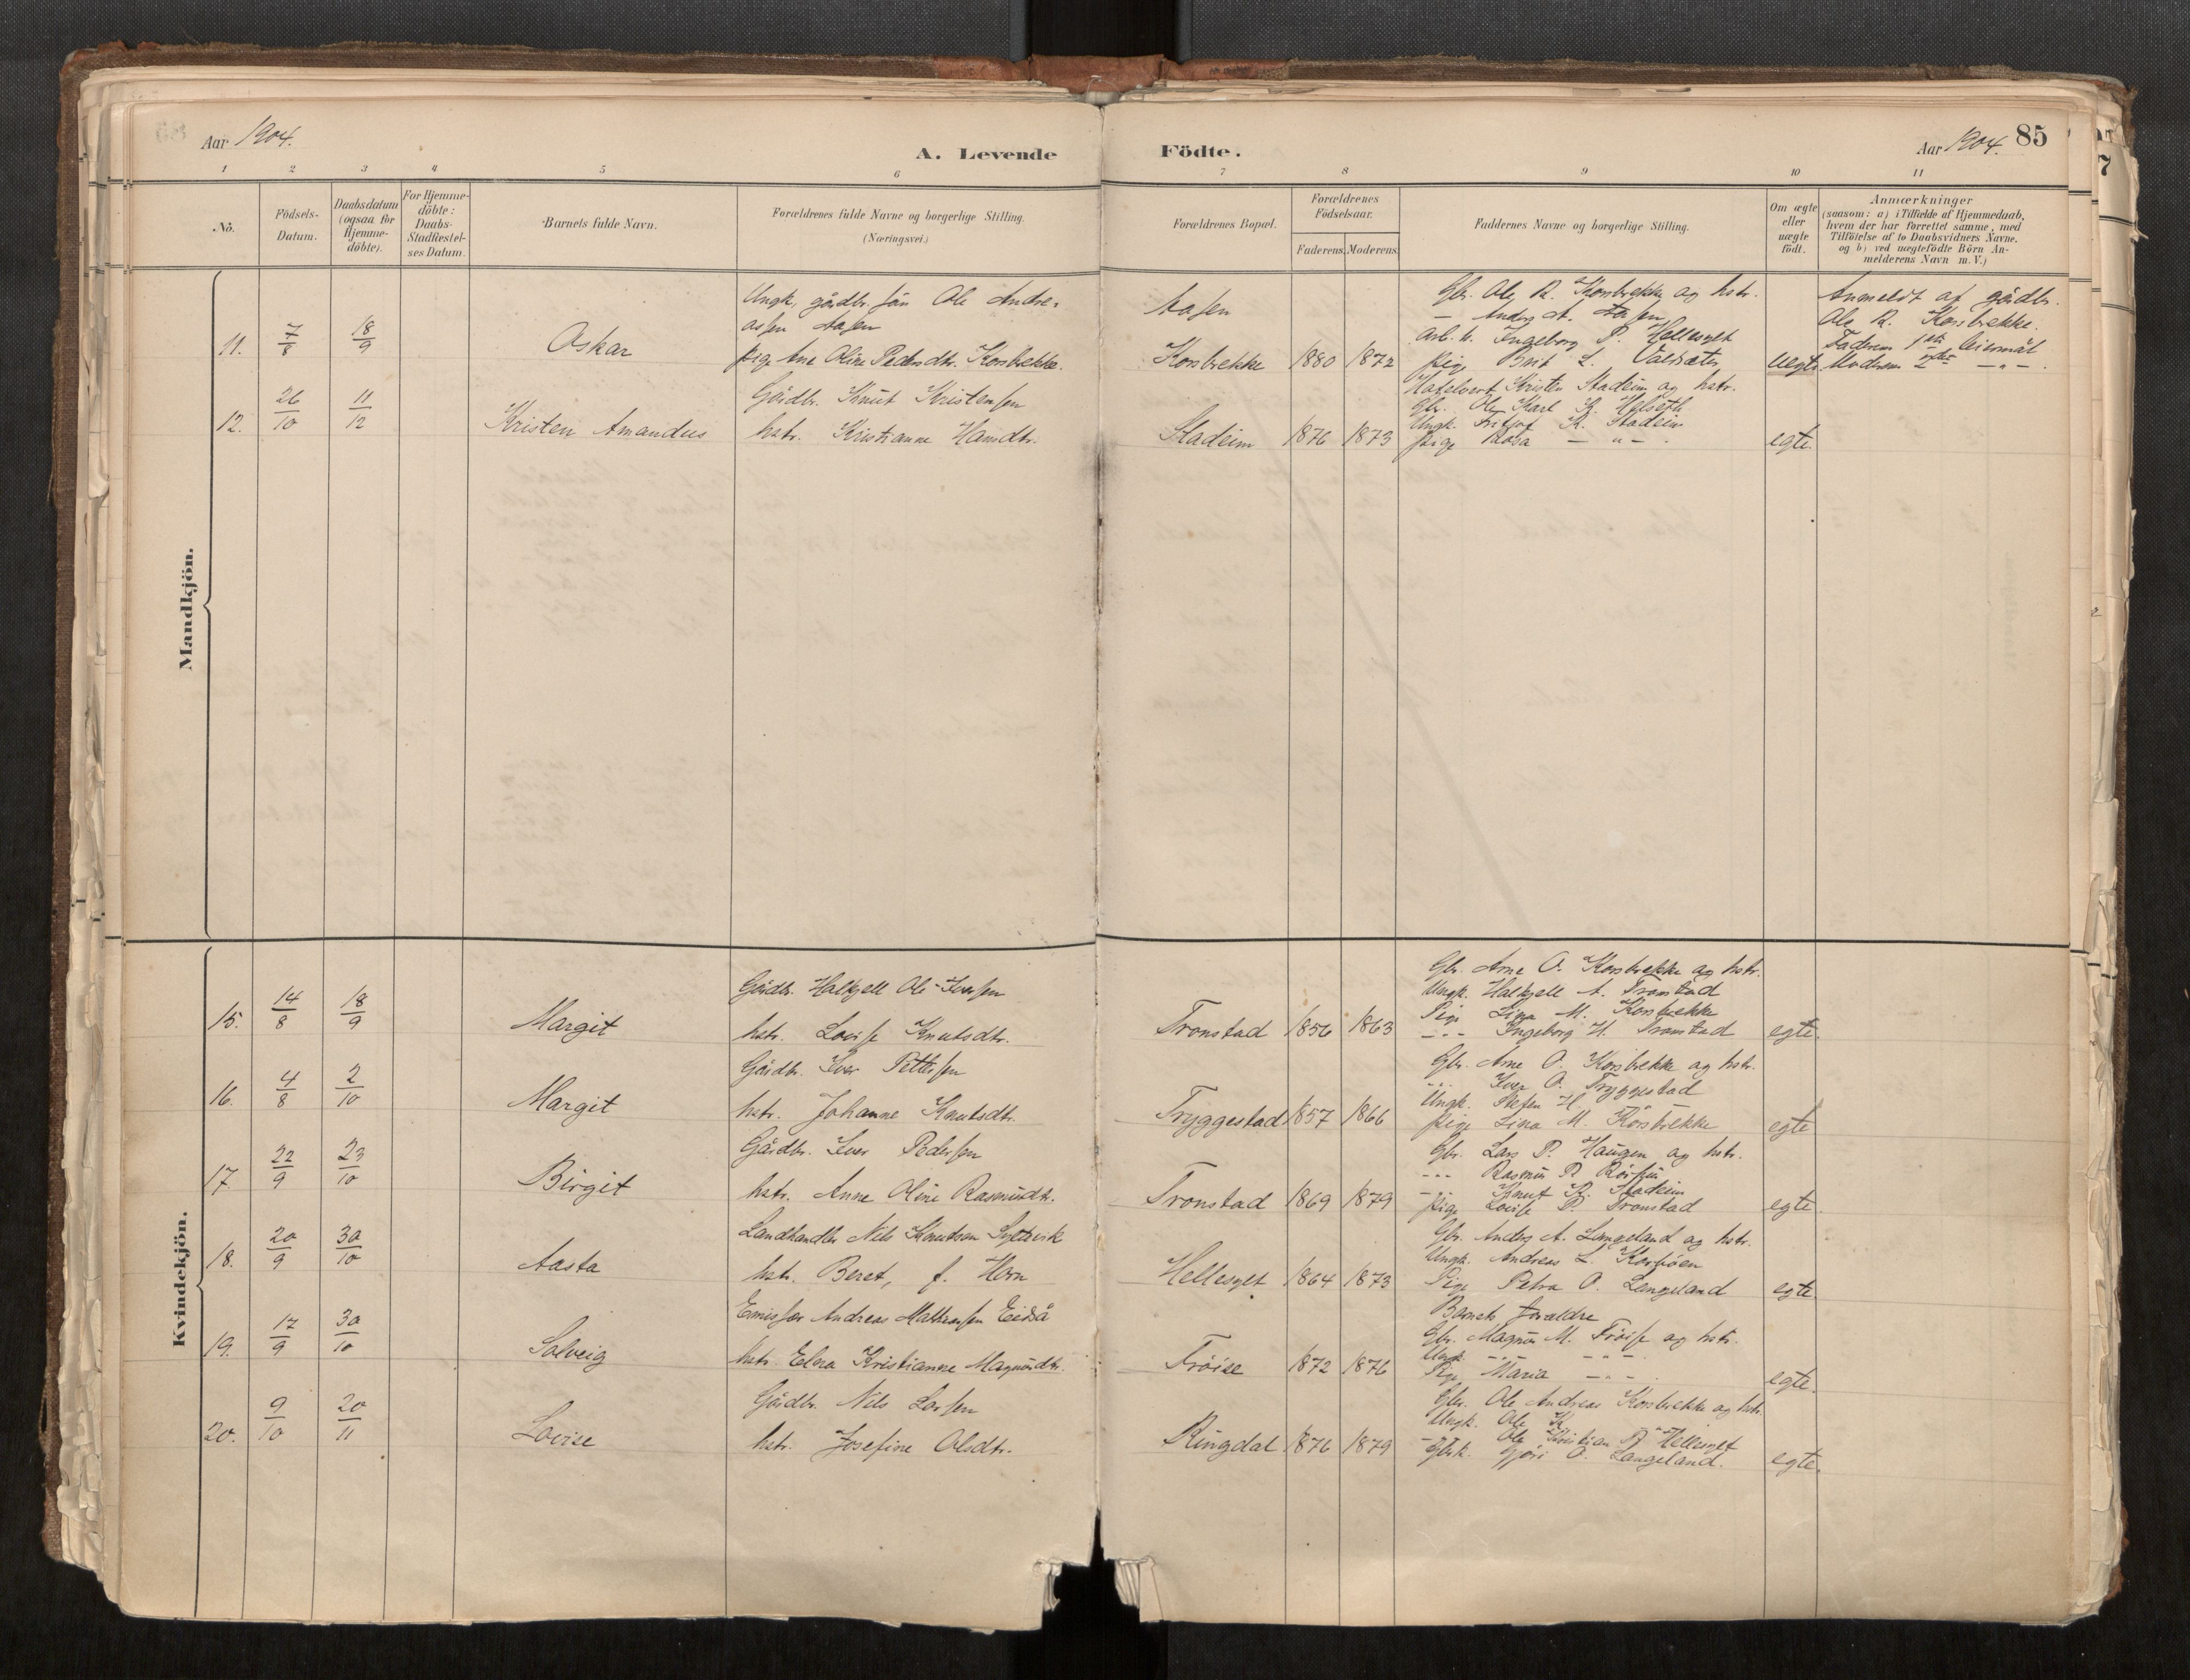 Aar 1904.
A. Levende
Födte.
Aar 1904.
85
1 2 3 4 5 6 7 8 9 10 11
No.
Födsels-
Datum.
Daabsdatum
(ogsaa for
Hjemme-
döbte).
For Hjemme-
döbte:
Daabs-
Stadfæstel-
ses Datum.
Barnets fulde Navn.
Forældrenes fulde Navne og borgerlige Stilling.
(Næringsvei.)
Forældrenes Bopæl.
Forældrenes
Födselsaar.
Faderens. Moderens.
Faddernes Navne og borgerlige Stilling.
Om ægte
eller
uægte
födt.
Anmærkninger
(saasom: a) i Tilfælde af Hjemmedaab,
hvem der har forrettet samme, med
Tilföielse af to Daabsvidners Navne,
og b) ved uægtefödte Börn An-
melderens Navn m. V.)
Mandkjön.
11.
7/8
18/9
Oskar
Ungk, gårdbr. sön Ole Andre-
assen Aasen
pige Ane Oline Pedersdtr. Korsbrekke.
Aasen
Korsbrekke
1880
1872
Gbr. Ole R. Korsbrekke og hstr.
— Anders A. Aasen
arb. k. Ingeborg P. Hellesylt
pige Brit L.
uegte
Anmeldt af gårdbr.
Ole R. Korsbrekke.
Faderens 1ste leiermål
Moderens 2det — " —.
12.
26/10
11/12
Kristen Amandus
Gårdbr. Knut Kristensen
hstr. Kristianne Hansdtr.
Stadeim
1876
1873
Kristen Stadeim og hstr.
Gbr. Ole Karl K. Helseth
Ungk. Fritjof K. Stadeim
pige Rosa — " —.
egte.
Kvindekjön.
15.
14/8
18/9
Margit
Gårdbr. Halkjell Ole-Iversen
hstr. Lovise Knutsdtr.
Tronstad
1856
1863
Gbr. Arne O. Korsbrekke og hstr.
Ungk. Halkjell A. Tronstad
Pige Lina M. Korsbrekke
--- Ingeborg H. Tronstad
egte.
16.
4/8
2/10
Margit
Gårdbr. Iver Pettersen
hstr. Johanne Knutsdtr.
Tryggestad
1857
1866
Gbr. Arne O. Korsbrekke og hstr.
... Iver O. Tryggestad
Ungk. Steffen H.
pige Lina M. Korsbrekke
egte
17.
22/9
23/10
Birgit
Gårdbr. Iver Pedersen
hstr. Anne Oline Rasmusdtr.
Tronstad
1869
1879
Gbr. Lars P. Haugen og hstr.
--- Rasmus P.
— Knut K. Stadeim
pige Lovise P. Tronstad
egte.
18.
20/9
30/10
Aasta
Landhandler Nils Knutson
hstr. Beret, f. Horn
Hellesylt
1864
1873
Gbr. Anders A. Langeland og hstr.
Ungk. Andreas L.
Pige Petra O. Langeland
egte.
19.
17/9
30/10
Solveig
Emissær Andreas Eidså
hstr. Elna Kristianne Magnusdtr.
Fröise
1872
1876
Barnets forældre
Gbr. Magnus M. Fröise og hstr.
Ungk. --- ---.
Pige Maria ---
egte.
20.
9/10
20/11
Lovise
Gårdbr. Nils Larsen
hstr. Josefine Olsdtr.
Ringdal
1876
1879
Gbr. Ole Andreas Korsbrekke og hstr.
Ungk. Ole K.
- " - Ole Kristian P. Hellesylt
Gjöri O. Langeland.
egte.